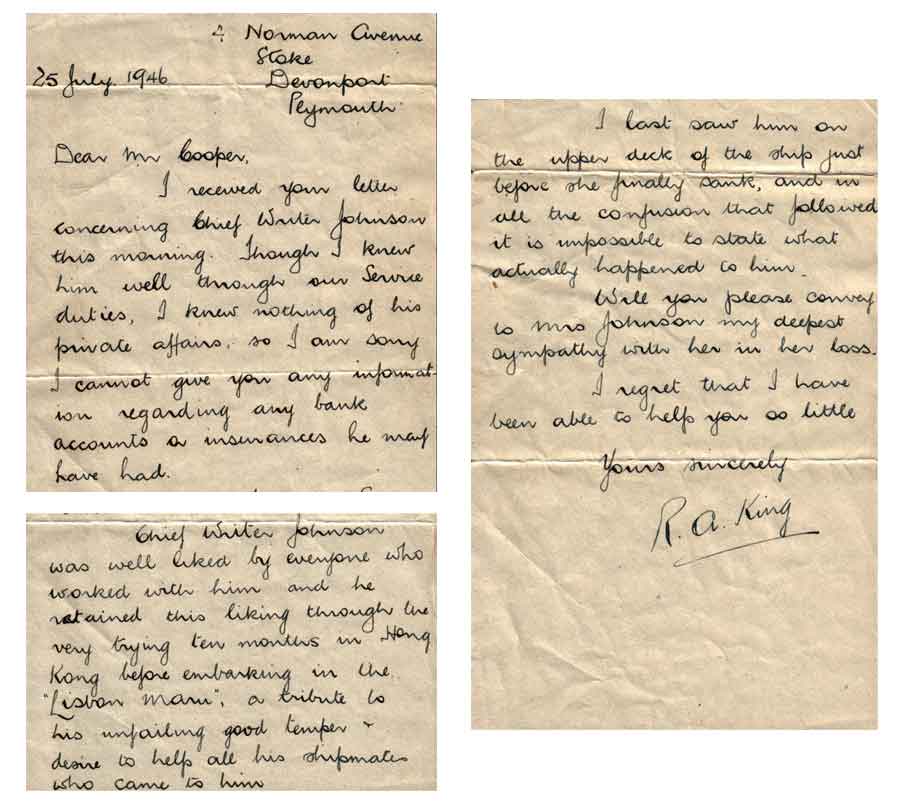 4 Norman Avenue
Stoke
25 July. 1946 Devonport
Plymouth.
Dear Mr Cooper,
I received your letter
concerning Chief Writer Johnson
this morning. Though I knew
him well through our Service
duties, I knew nothing of his
private affairs, so I am sorry
I cannot give you any informat-
ion regarding any bank
accounts or insurances he may
have had.
Chief Writer Johnson
was well liked by everyone who
worked with him and he
retained this liking through the
very trying ten months in Hong
Kong before embarking in the
"Lisbon Maru", a tribute to
his unfailing good temper +
desire to help all his shipmates
who came to him
I last saw him on
the upper deck of the ship just
before she finally sank, and in
all the confusion that followed
it is impossible to state what
actually happened to him.
Will you please convey
to Mrs Johnson my deepest
sympathy with her in her loss.
I regret that I have
been able to help you so little
Yours sincerely
R. A. King